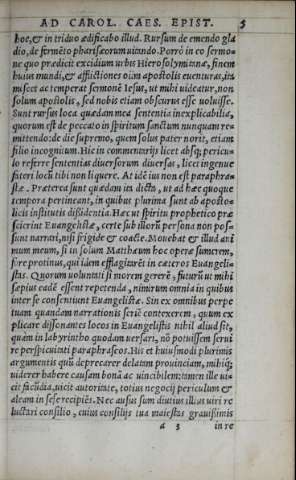 AD CAROL. CAES. EPIST. 5
hoc, & in triduo ædificabo illud. Rursum de emendo gla
dio, de fermẽto pharisæorum uitando. Porrò in eo sermo-
ne quo prædicit excidium urbis Hierosolymitanæ, finem
huius mundi, & afflictiones oĩm apostolis euenturas, ita
miscet ac temperat sermonẽ Iesus, ut mihi uideatur, non
solum apostolis, sed nobis etiam obscurus esse uoluisse.
Sunt rursus loca quædam mea sententia inexplicabilia,
quorum est de peccato in spiritum sanctum nunquam re-
mittendo: de die supremo, quem solus pater norit, etiam
filio incognitum. Hic in commentarijs licet absq; pericu-
lo referre sententias diuersorum diuersas, licet ingenue
fateri locũ tibi non liquere. At idẽ ius non est paraphra-
stæ. Præterea sunt quædam ita dicta, ut ad hæc quoque
tempora pertineant, in quibus plurima sunt ab aposto-
licis institutis dissidentia. Hæc ut spiritu prophetico præ
scierint Euangelistæ, certe sub illorũ persona non pos-
sunt narrari, nisi frigide & coacte. Mouebat & illud ani
mum meum, si in solum Matthæum hoc operæ sumerem,
fore protinus, qui idem efflagitarẽt in cæteros Euangeli-
stas. Quorum uoluntati si morem gererẽ, futurũ ut mihi
sæpius eadẽ essent repetenda, nimirum omnia in quibus
inter se consentiunt Euangelistæ. Sin ex omnibus perpe
tuam quandam narrationis seriẽ contexerem, quum ex
plicare dissonantes locos in Euangelistis nihil aliud sit,
quàm in labyrintho quodam uersari, nõ potuissem serui
re perspicuitati paraphraseos. His et huiusmodi plurimis
argumentis quũ deprecarer delatam prouinciam, mihiq;
uiderer habere causam bonã ac uincibilem: tamen ille ui-
cit facũdia, uicit autoritate, totius negocij periculum &
aleam in se recipiẽs. Nec ausus sum diutius illius uiri re
luctari consilio, cuius consilijs tua maiestas grauissimis
a 3 in re